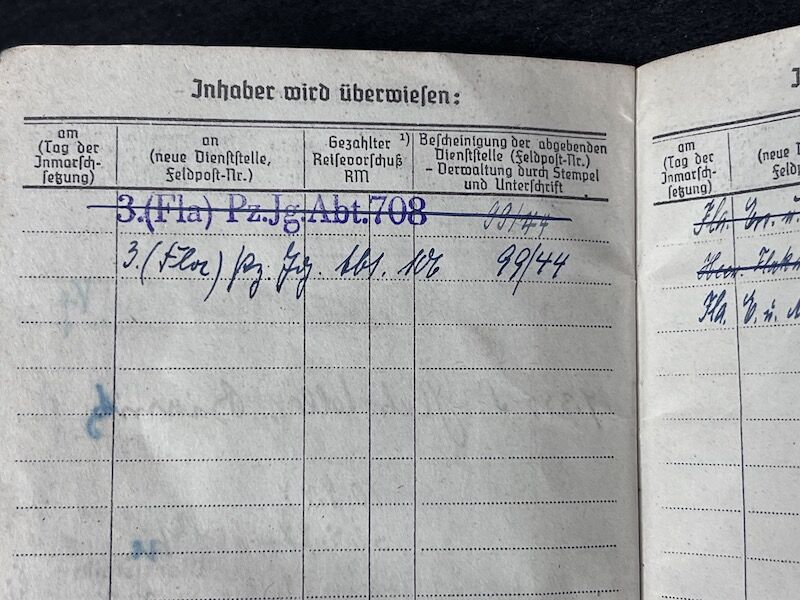 Inhaber wird überwiesen:
am
(Tag der
Inmarsch-
setzung)
an
(neue Dienststelle,
Feldpost-Nr.)
Gezahlter ¹)
Reisevorschuß
RM
Bescheinigung der abgebenden
Dienststelle (Feldpost-Nr.)
- Verwaltung durch Stempel
und Unterschrift
3.(Fla) Pz.Jg.Abt.708 99/44
3. (Fla) Pz. Jg. Abt. 106 99/44
am
(Tag der
Inmarsch-
setzung)
(neue
Feldp
Fla.
Fla. E. u.